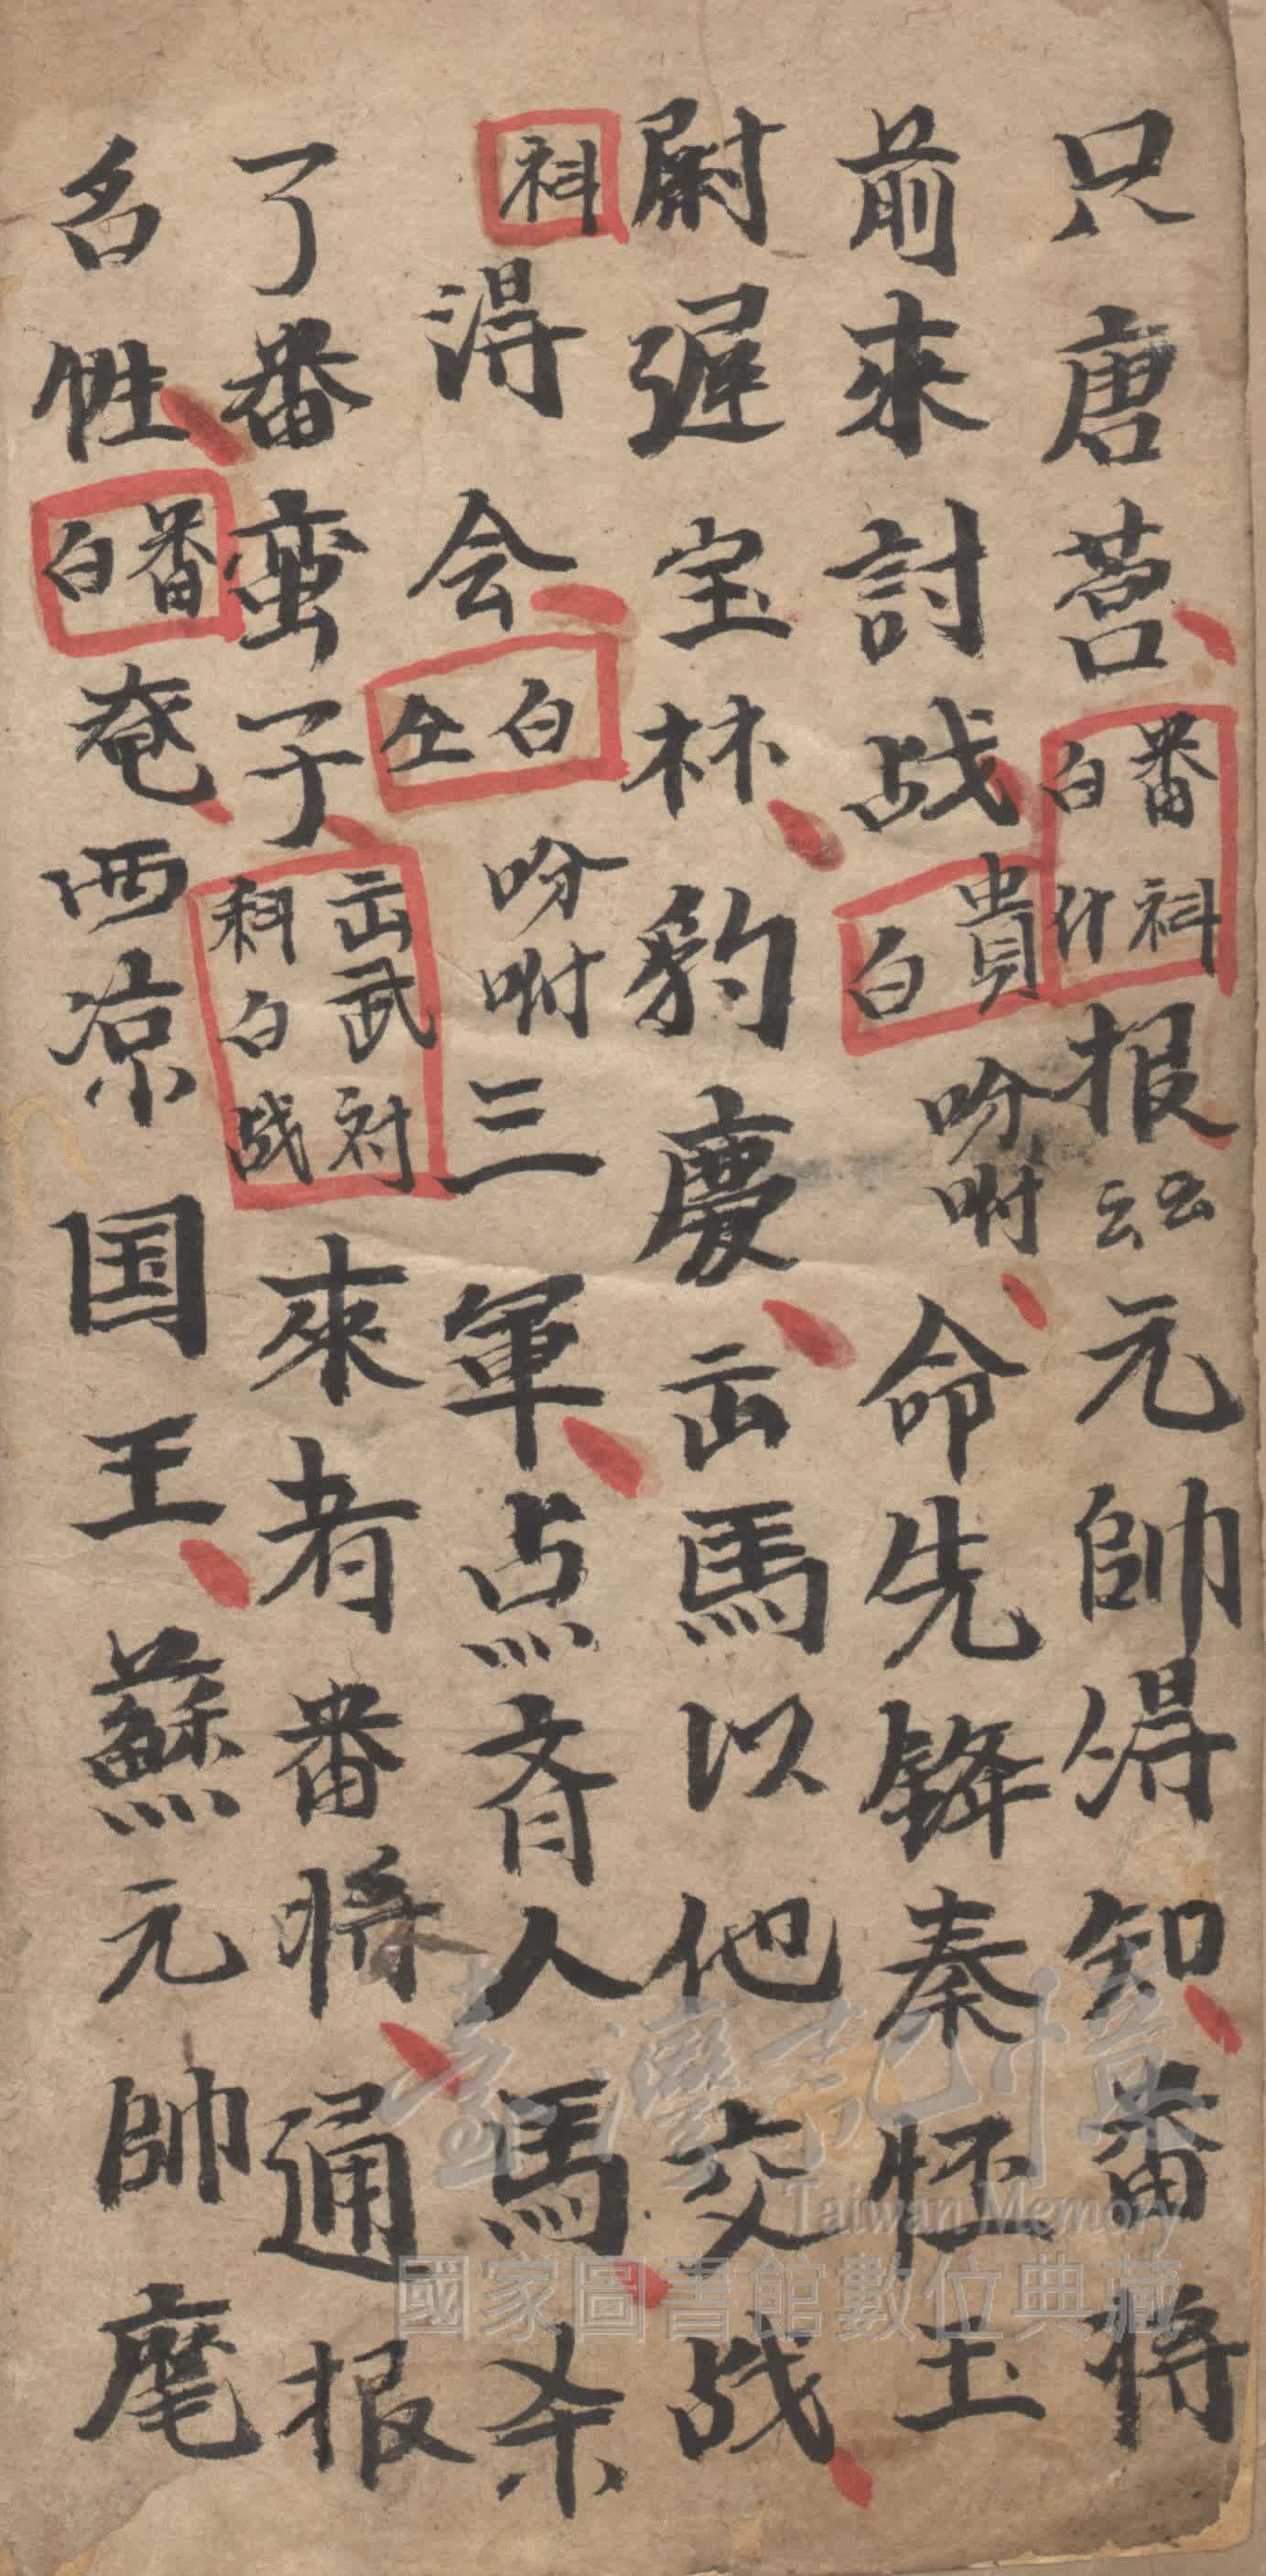 只唐莒番科白介报云云元帥得知番将
前來討战貴白吩咐命先鋒秦怀玉
尉遲宝林豹慶出馬以他交战
科得会白仝吩咐三軍点斉人馬杀
了番蛮子出武科白战来者番将通报
名性番白奄西凉国王蘇元帥麾
臺灣記憶
Taiwan Memory
國家圖書館數位典藏